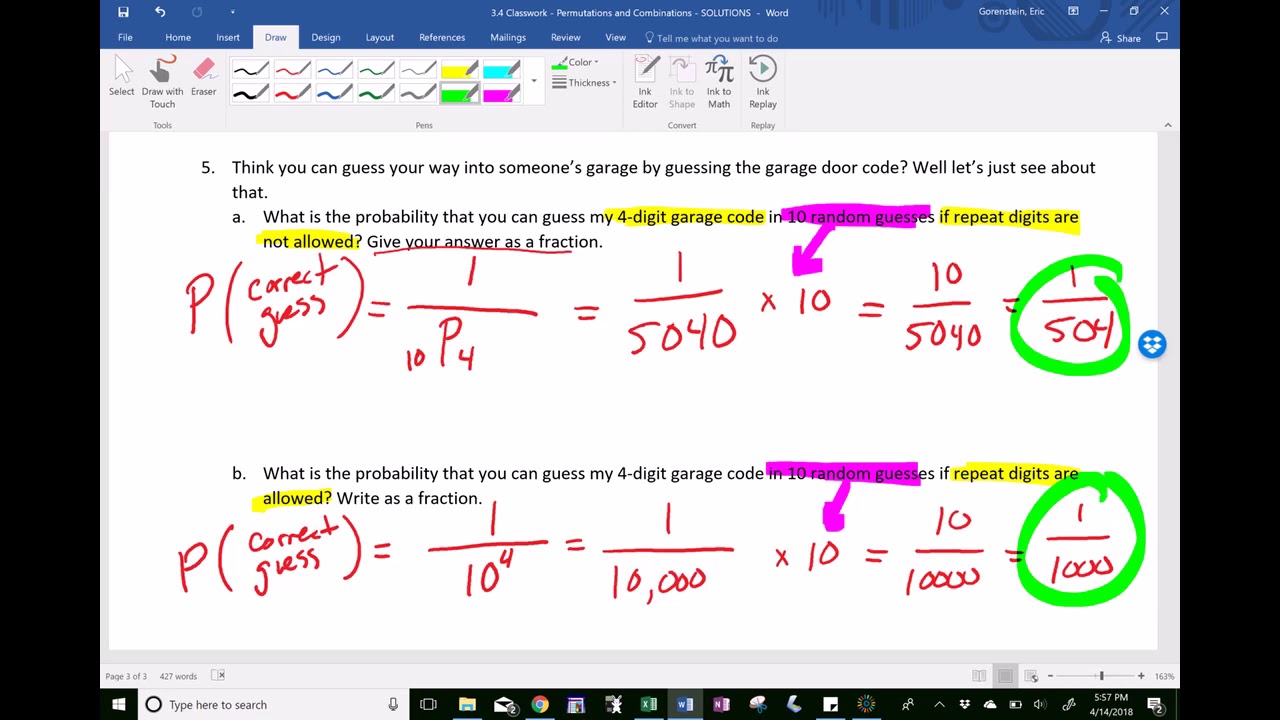 3.4 Classwork - Permutations and Combinations - SOLUTIONS - Word
Gorenstein, Eric
File Home Insert Draw Design Layout References Mailings Review View Tell me what you want to do Share
Select Draw with Touch Eraser Color Thickness Ink Editor Ink to Shape Ink to Math Ink Replay
Tools Pens Convert Replay
5. Think you can guess your way into someone's garage by guessing the garage door code? Well let's just see about
that.
a. What is the probability that you can guess my 4-digit garage code in 10 random guesses if repeat digits are
not allowed? Give your answer as a fraction.
P(correct guess) = 1/10P4 = 1/5040 x 10 = 10/5040 = 1/504
b. What is the probability that you can guess my 4-digit garage code in 10 random guesses if repeat digits are
allowed? Write as a fraction.
P(correct guess) = 1/10⁴ = 1/10,000 x 10 = 10/10000 = 1/1000
Page 3 of 3 427 words 163%
Type here to search
5:57 PM
4/14/2018
2